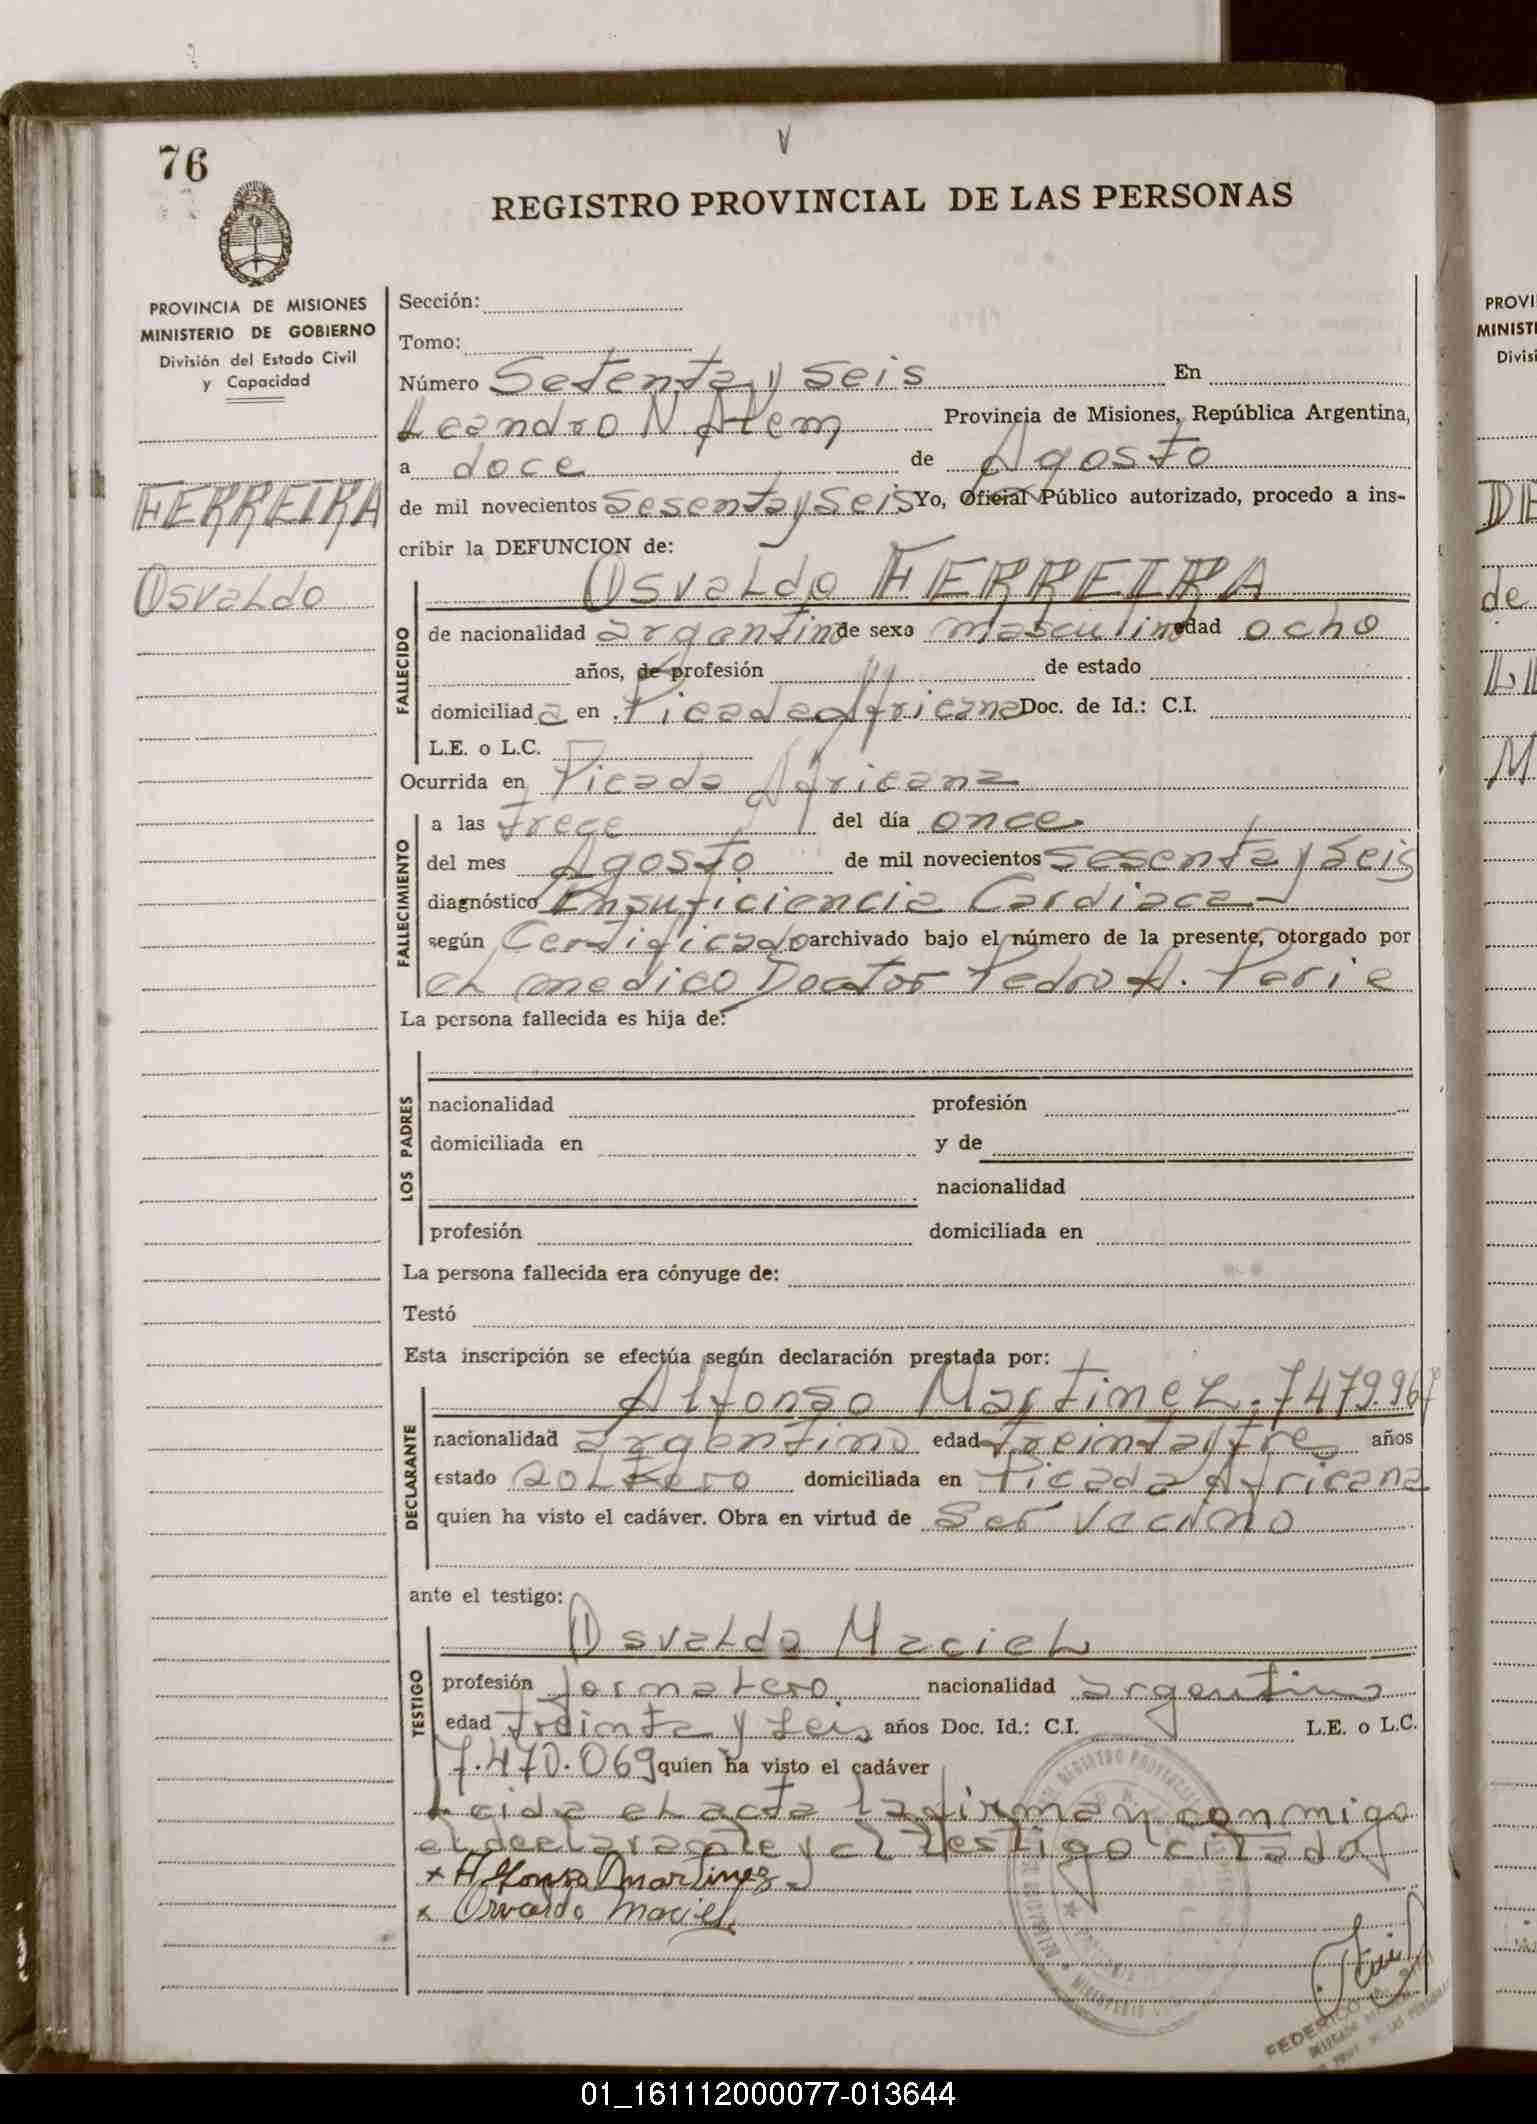 76
REGISTRO PROVINCIAL DE LAS PERSONAS
PROVINCIA DE MISIONES
MINISTERIO DE GOBIERNO
División del Estado Civil
y Capacidad
FERREIRA
Osvaldo
Sección:
Tomo:
Número Setenta y Seis En
Leandro N. Alem Provincia de Misiones, República Argentina,
a doce de Agosto
de mil novecientos Sesenta y Seis Yo, Oficial Público autorizado, procedo a ins-
cribir la DEFUNCION de:
Osvaldo FERREIRA
FALLECIDO
de nacionalidad argentino de sexo masculino edad ocho
años, de profesión de estado
domiciliada en Picada Africana Doc. de Id.: C.I.
L.E. o L.C.
Ocurrida en Picada Africana
FALLECIMIENTO
a las trece del día once
del mes Agosto de mil novecientos Sesenta y Seis
diagnóstico Insuficiencia Cardiaca
según Certificado archivado bajo el número de la presente, otorgado por
el medico Doctor Pedro A. Perie
La persona fallecida es hija de:
LOS PADRES
nacionalidad profesión
domiciliada en y de
nacionalidad
profesión domiciliada en
La persona fallecida era cónyuge de:
Testó
Esta inscripción se efectúa según declaración prestada por:
Alfonso Martinez. 7479.967
DECLARANTE
nacionalidad argentino edad treinta y tres años
estado soltero domiciliada en Picada Africana
quien ha visto el cadáver. Obra en virtud de Ser Vecino
ante el testigo:
Osvaldo Maciel
TESTIGO
profesión jornalero nacionalidad argentino
edad treinta y seis años Doc. Id.: C.I. L.E. o L.C.
7.470.069 quien ha visto el cadáver
Leida el acta la firman conmigo
el declarante y el testigo citado
x Alfonso Martinez
x Osvaldo Maciel
FEDERICO
PROVI
MINISTE
Divisi
DE
de
LI
M
01_161112000077-013644